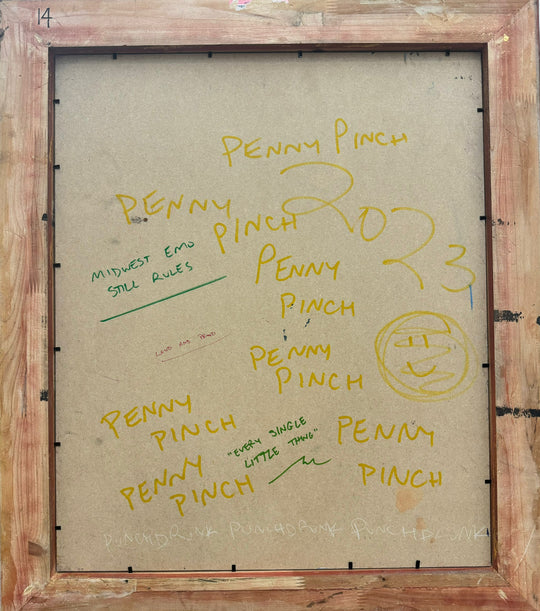 14
PENNY PINCH
2023
PENNY
PINCH
MIDWEST EMO
STILL RULES
PENNY
PINCH
LOUD AND PROUD
PENNY
PINCH
PENNY
PINCH
"EVERY SINGLE
LITTLE THING"
PENNY
PINCH
PENNY
PINCH
PUNCHDRUNK PUNCHDRUNK PUNCHDRUNK